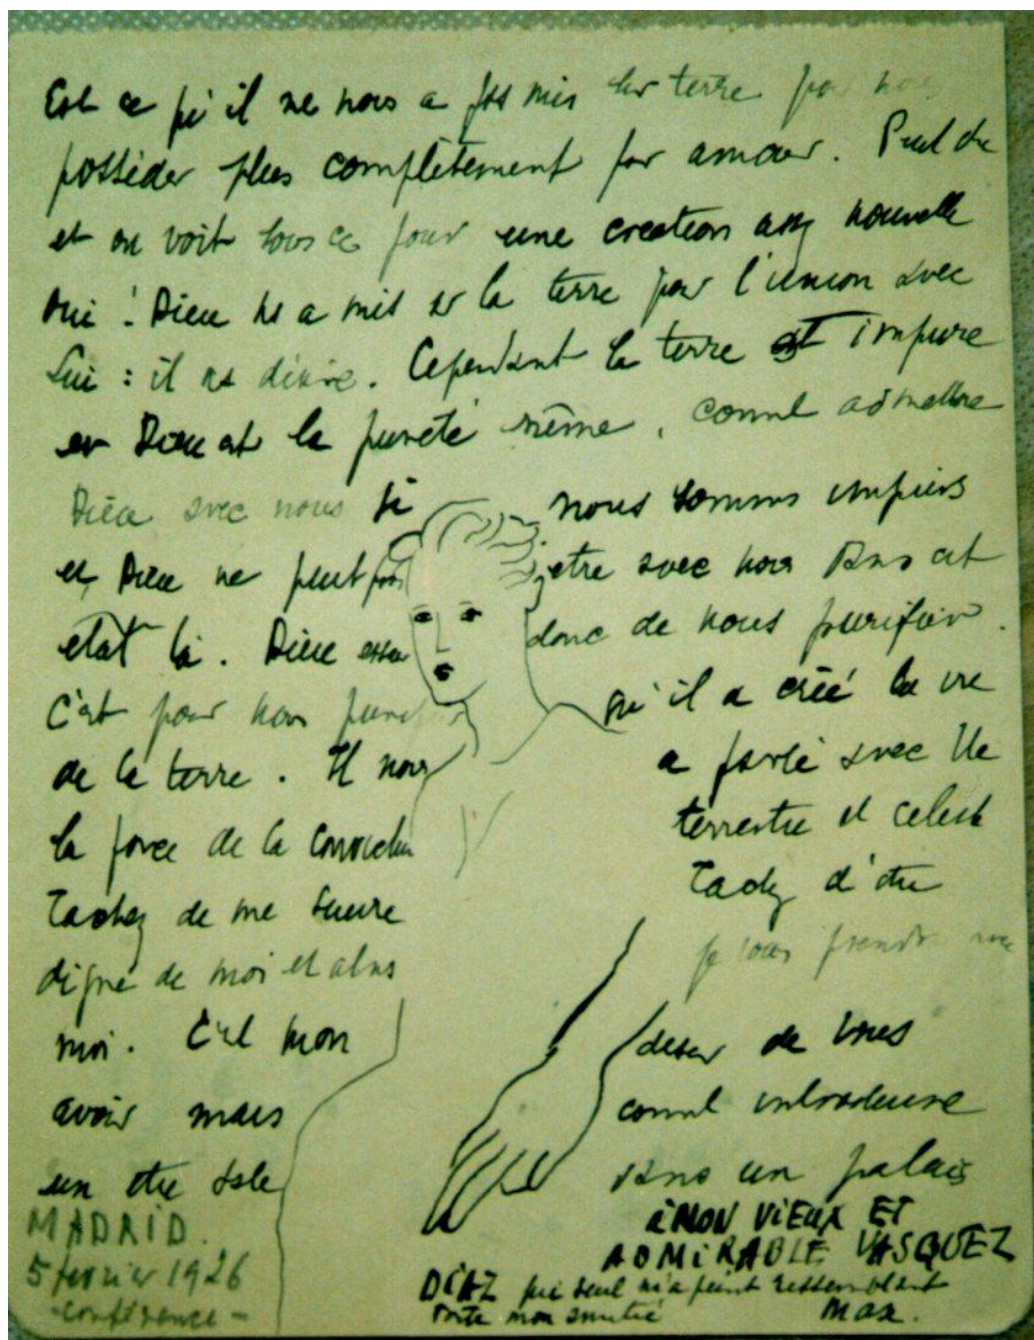 Est ce qu'il ne nous a pas mis sur terre pour nous
posséder plus complètement par amour.
et on voit tous ce jour une creation assez nouvelle
oui ! Dieu ns a mis sr la terre pour l'union avec
Lui : il ns désire. Cependant la terre est impure
et Dieu est la pureté même, comnt admettre
Dieu avec nous si nous sommes impurs
et Dieu ne peut pas etre avec nous dans cet
etat là. Dieu donc de nous purifier.
C'est pour nous qu'il a créé la vie
de la terre. Il nous a parlé avec
la force de la conviction terrestre et celeste
Tachez de me suivre Tachez d'être
digne de moi et alors je vous prendrai avec
moi. C'est mon desir de vous
avoir mais comnt introduire
un etre sale dans un palais
MADRID.
5 février 1926
- conférence -
à MON VIEUX ET
ADMIRABLE VASQUEZ
DIAZ qui seul m'a peint ressemblant
toute mon amitié
Max.